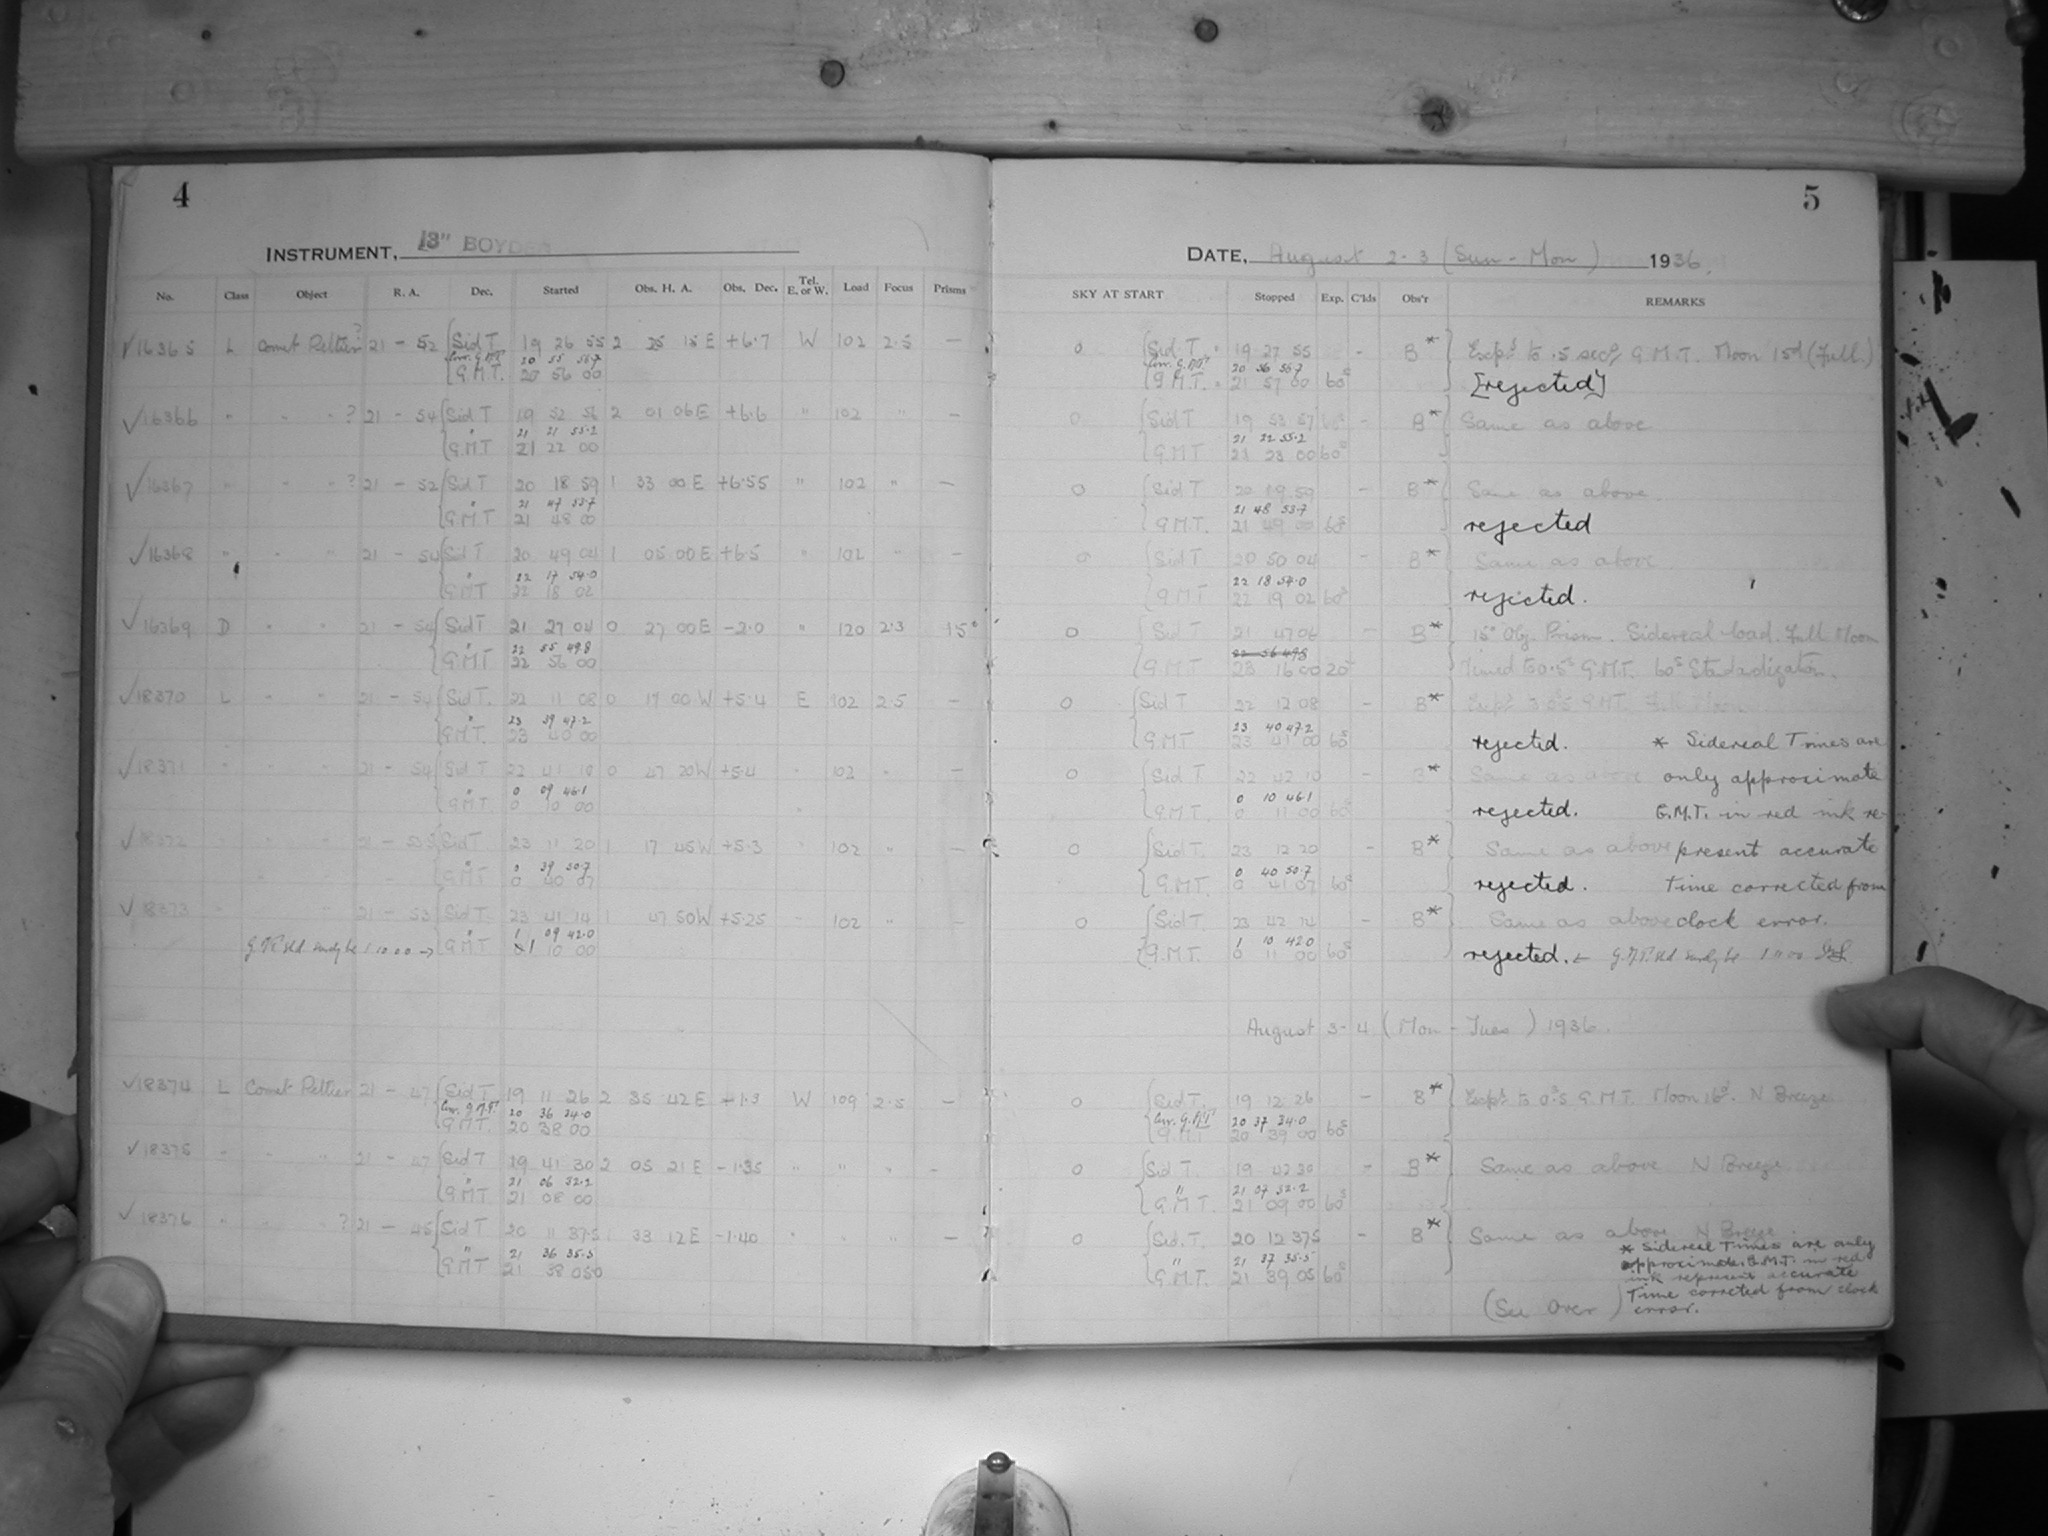 4
INSTRUMENT, 13" BOYDEN
No. Class Object R. A. Dec. Started Obs. H. A. Obs. Dec. Tel. E. or W. Load Focus Prisms
✓16365 L Comet Peltier? 21 - 52 Sid T 19 26 55 2 25 15 E +6.7 W 102 2.5 —
Corr. G.M.T. 20 55 56.7
G.M.T. 20 56 00
✓16366 " " " ? 21 - 54 Sid T 19 52 56 2 01 06 E +6.6 " 102 " —
" 21 21 55.2
G.M.T 21 22 00
✓16367 " " " ? 21 - 52 Sid T 20 18 59 1 33 00 E +6.55 " 102 " —
" 21 47 53.7
G.M.T 21 48 00
✓16368 " " " 21 - 54 Sid T 20 49 04 1 05 00 E +6.5 " 102 " —
" 22 17 54.0
G.M.T 22 18 02
✓16369 D " " 21 - 54 Sid T 21 27 04 0 27 00 E -2.0 " 120 2.3 15°
" 22 55 49.8
G.M.T 22 56 00
✓18370 L " " 21 - 54 Sid T. 22 11 08 0 17 00 W +5.4 E 102 2.5 —
" 23 39 47.2
G.M.T. 23 40 00
✓18371 " " " 21 - 54 Sid T 22 41 10 0 47 20 W +5.4 " 102 " —
" 0 09 46.1
G.M.T. 0 10 00
✓18372 " " " 21 - 53 Sid T 23 11 20 1 17 45 W +5.3 " 102 " —
" 0 39 50.7
G.M.T 0 40 07
✓18373 " " " 21 - 53 Sid T. 23 41 14 1 47 50 W +5.25 " 102 " —
" 1 09 42.0
1 10 00 → G.M.T 1 10 00
✓18374 L Comet Peltier 21 - 47 Sid T. 19 11 26 2 35 42 E +1.3 W 109 2.5 —
Corr. G.M.T. 20 36 34.0
G.M.T. 20 38 00
✓18375 " " " 21 - 47 Sid T 19 41 30 2 05 21 E -1.35 " " " —
" 21 06 32.2
G.M.T. 21 08 00
✓18376 " " " ? 21 - 45 Sid T 20 11 37.5 1 33 12 E -1.40 " " " —
" 21 36 35.5
G.M.T 21 38 05.0
5
DATE, August 2-3 (Sun - Mon) 1936.
SKY AT START Stopped Exp. C'lds Obs'r REMARKS
0 Sid T. 19 27 55 - B* Exp.d to .5 sec. G.M.T. Moon 15d (Full)
Corr. G.M.T. 20 56 56.7
G.M.T. 21 57 00 60s [rejected]
0 Sid T 19 53 57 - B* Same as above
21 22 55.2
G.M.T 21 23 00 60s
0 Sid T 20 19 59 - B* Same as above
21 48 53.7
G.M.T. 21 49 00 60s rejected
0 Sid T 20 50 04 - B* Same as above
22 18 54.0
G.M.T 22 19 02 60s rejected.
0 Sid T 21 47 06 - B* 15° Obj. Prism. Sidereal load. Full Moon
22 56 49.8
G.M.T. 23 16 00 20 Timed to 0.5s G.M.T. 60s Standardization.
0 Sid T 22 12 08 - B* Full Moon
23 40 47.2
G.M.T 23 41 00 60s rejected. * Sidereal Times are
0 Sid T 22 42 10 - B* Same as above only approximate
0 10 46.1
G.M.T. 0 11 00 60s rejected. G.M.T. in red ink re-
0 Sid T. 23 12 20 - B* Same as above present accurate
0 40 50.7
G.M.T. 0 41 07 60s rejected. Time corrected from
0 Sid T. 23 42 14 - B* Same as above clock error.
1 10 42.0
G.M.T. 0 11 00 60s rejected. ←
August 3-4 (Mon - Tues) 1936.
0 Sid T. 19 12 26 - B* Exp.d to 0.5s G.M.T. Moon 16d. N Breeze
Corr. G.M.T. 20 37 34.0
G.M.T 20 39 00 60s
0 Sid T. 19 42 30 - B* Same as above N Breeze
" 21 07 32.2
G.M.T. 21 09 00 60s
0 Sid. T. 20 12 37.5 - B* Same as above N Breeze
" 21 37 35.5
G.M.T. 21 39 05 60s
* Sidereal Times are only
approximate. G.M.T. in red
ink represent accurate
Time corrected from clock
error.
(See Over)